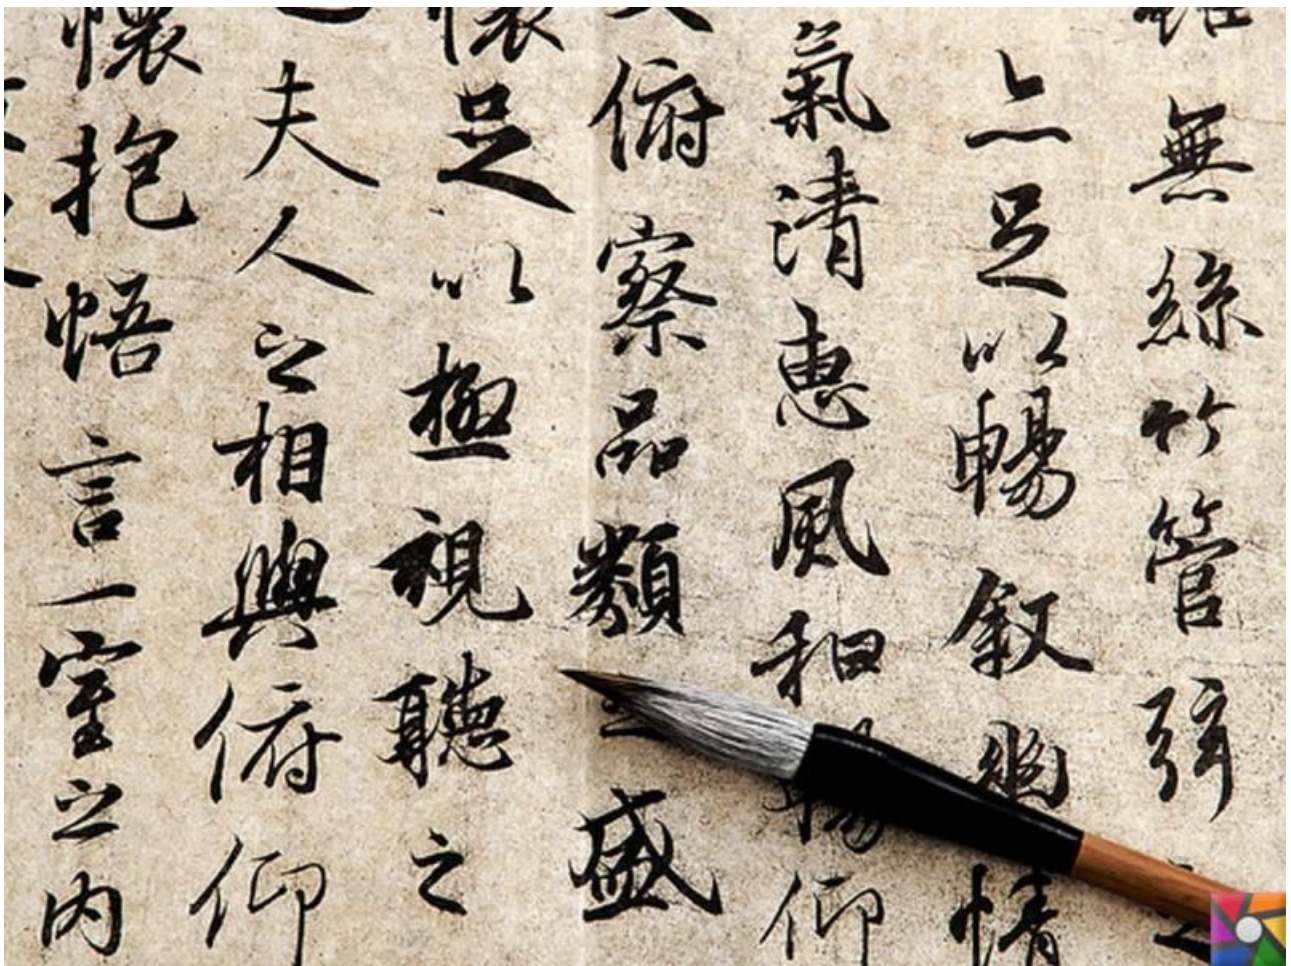 無絲竹管弦之
亦足以暢敘幽情
氣清惠風和暢仰
俯察品類之盛
懷足以極視聽之
夫人之相與俯仰
懷抱悟言一室之內